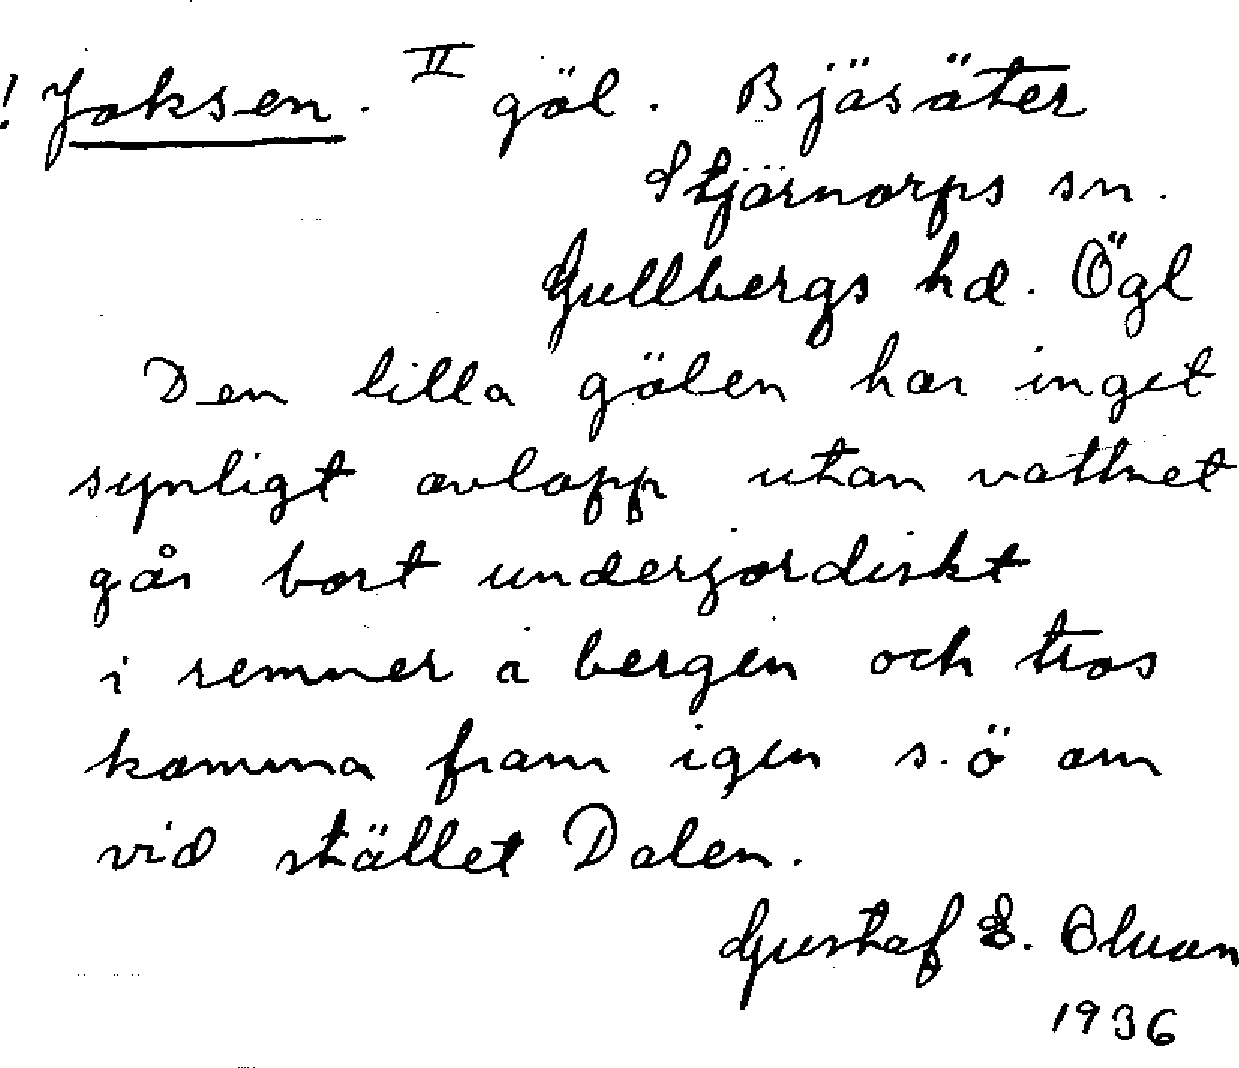 ! Joksen. II göl. Bjäsäter
Stjärnorps sn.
Gullbergs hd. Ögl
Den lilla gölen har inget
synligt avlopp utan vattnet
går bort underjordiskt
i remner a bergen och tros
komma fram igen s.ö om
vid stället Dalen.
Gustaf E. Olsson
1936